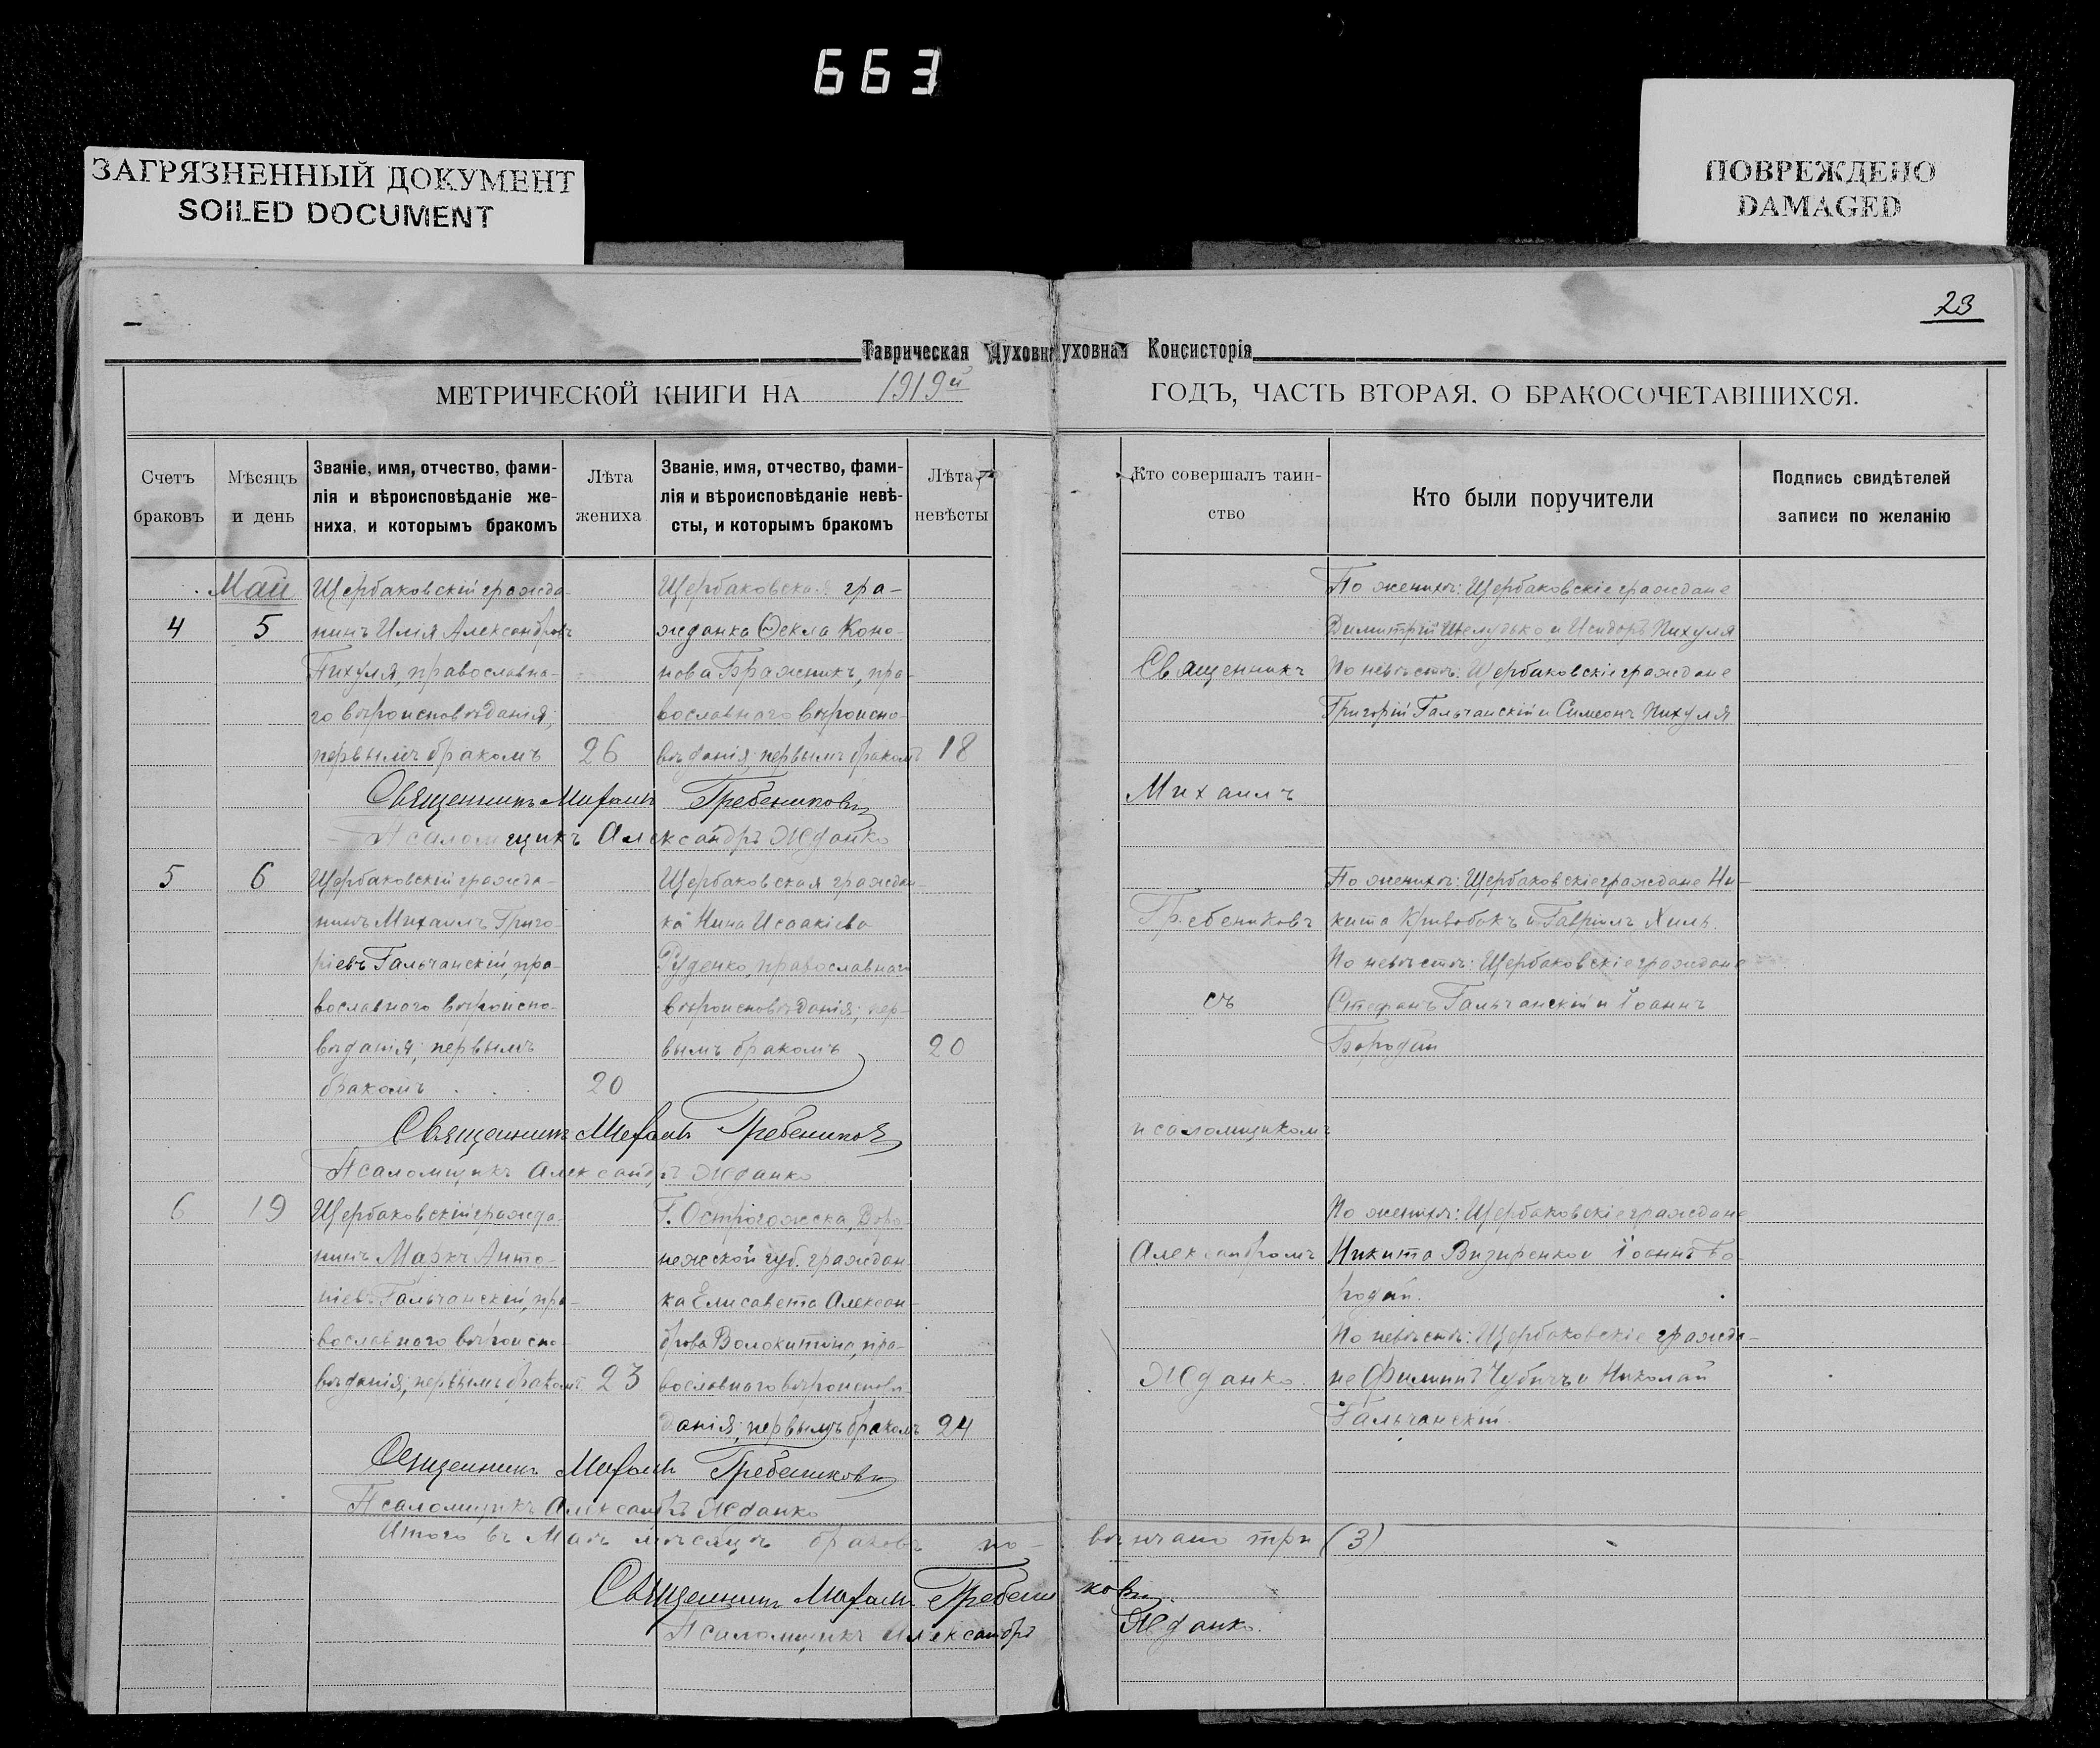 663
ЗАГРЯЗНЕННЫЙ ДОКУМЕНТ
SOILED DOCUMENT
ПОВРЕЖДЕНО
DAMAGED
23
Таврическая Духовн уховная Консисторія
МЕТРИЧЕСКОЙ КНИГИ НА 1919й ГОДЪ, ЧАСТЬ ВТОРАЯ. О БРАКОСОЧЕТАВШИХСЯ.
Счетъ
браковъ
Мѣсяцъ
и день
Званіе, имя, отчество, фами-
лія и вѣроисповѣданіе же-
ниха, и которымъ бракомъ
Лѣта
жениха
Званіе, имя, отчество, фами-
лія и вѣроисповѣданіе невѣ-
сты, и которымъ бракомъ
Лѣта
невѣсты
Кто совершалъ таин-
ство
Кто были поручители
Подпись свидѣтелей
записи по желанію
Май
4
5
Щербаковскій гражда-
нинъ Илія Александровъ
Пихуля, православна-
го вѣроисповѣданія;
первымъ бракомъ
26
Щербаковская гра-
жданка Ѳекла Коно-
нова Бражникъ, пра-
вославнаго вѣроиспо-
вѣданія; первымъ бракомъ
18
По женихѣ: Щербаковскіе граждане
Димитрій Шелудько и Исидоръ Пихуля
По невѣстѣ: Щербаковскіе граждане
Григорій Гальчанскій и Симеонъ Пихуля
Священникъ Михаилъ Гребениковъ
Псаломщикъ Александръ Жданко
5
6
Щербаковскій гражда-
нинъ Михаилъ Григо-
ріевъ Гальчанскій, пра-
вославнаго вѣроиспо-
вѣданія; первымъ
бракомъ
20
Щербаковская граждан-
ка Нина Исаакіева
Руденко, православнаго
вѣроисповѣданія; пер-
вымъ бракомъ
20
По женихѣ: Щербаковскіе граждане Ни-
кита Кривобокъ и Гавріилъ Хиль.
По невѣстѣ: Щербаковскіе граждане
Стефанъ Гальчанскій и Іоаннъ
Бородай
Священникъ Михаилъ Гребениковъ
Псаломщикъ Александръ Жданко
6
19
Щербаковскій гражда-
нинъ Маркъ Анто-
ніевъ Гальчанскій, пра-
вославнаго вѣроиспо-
вѣданія; первымъ бракомъ
23
Г. Острогожска, Воро-
нежской губ. граждан-
ка Елисавета Алексан-
дрова Волокитина, пра-
вославнаго вѣроисповѣ-
данія; первымъ бракомъ
24
По женихѣ: Щербаковскіе граждане
Никита Визиренко и Іоаннъ Бо-
родай.
По невѣстѣ: Щербаковскіе гражда-
не Филиппъ Чубичъ и Николай
Гальчанскій.
Священникъ
Михаилъ
Гребениковъ
съ
псаломщикомъ
Александромъ
Жданко.
Священникъ Михаилъ Гребениковъ
Псаломщикъ Александръ Жданко
Итого въ Маѣ мѣсяцѣ браковъ по- вѣнчано три (3)
Священникъ Михаилъ Гребениковъ
Псаломщикъ Александръ Жданко.